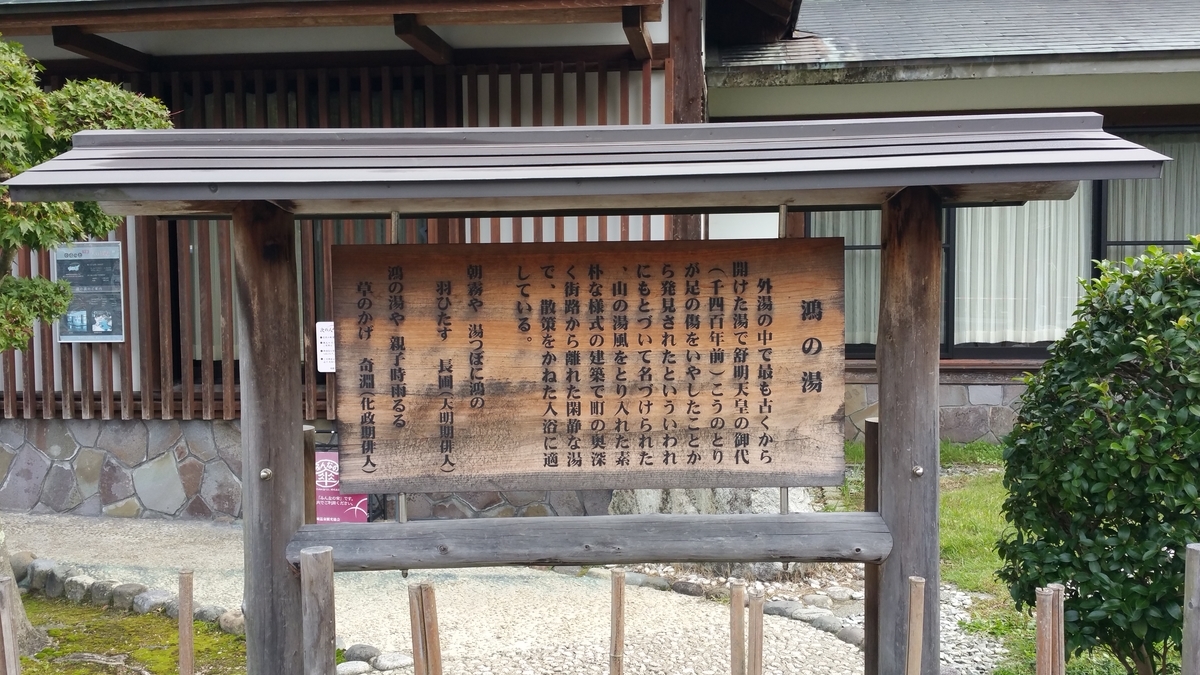 鴻の湯
外湯の中で最も古くから
開けた湯で舒明天皇の御代
(千四百年前)こうのとり
が足の傷をいやしたことか
ら発見されたといういわれ
にもとづいて名づけられた
、山の湯風をとり入れた素
朴な様式の建築で町の奥深
く街路から離れた閑静な湯
で、散策をかねた入浴に適
している。
朝霧や 湯つぼに鴻の
羽ひたす 長圃(大明期俳人)
鴻の湯や 親子時雨るる
草のかげ 奇淵(化政期俳人)